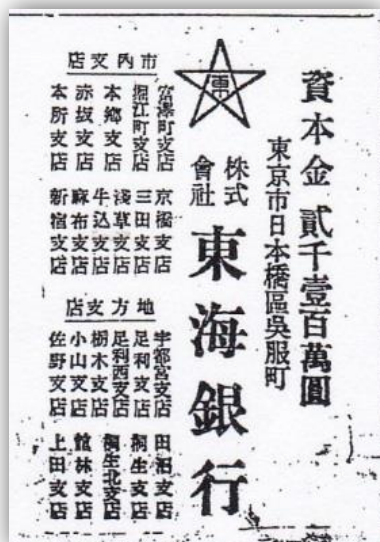 資本金 貳千壹百萬圓
東京市日本橋區吳服町
東
株式會社
東海銀行
市內支店
富澤町支店
堀江町支店
本鄉支店
赤坂支店
本所支店
京橋支店
三田支店
淺草支店
牛込支店
麻布支店
新宿支店
地方支店
宇都宮支店
足利支店
足利西支店
栃木支店
小山支店
佐野支店
田沼支店
桐生支店
桐生北支店
館林支店
上田支店